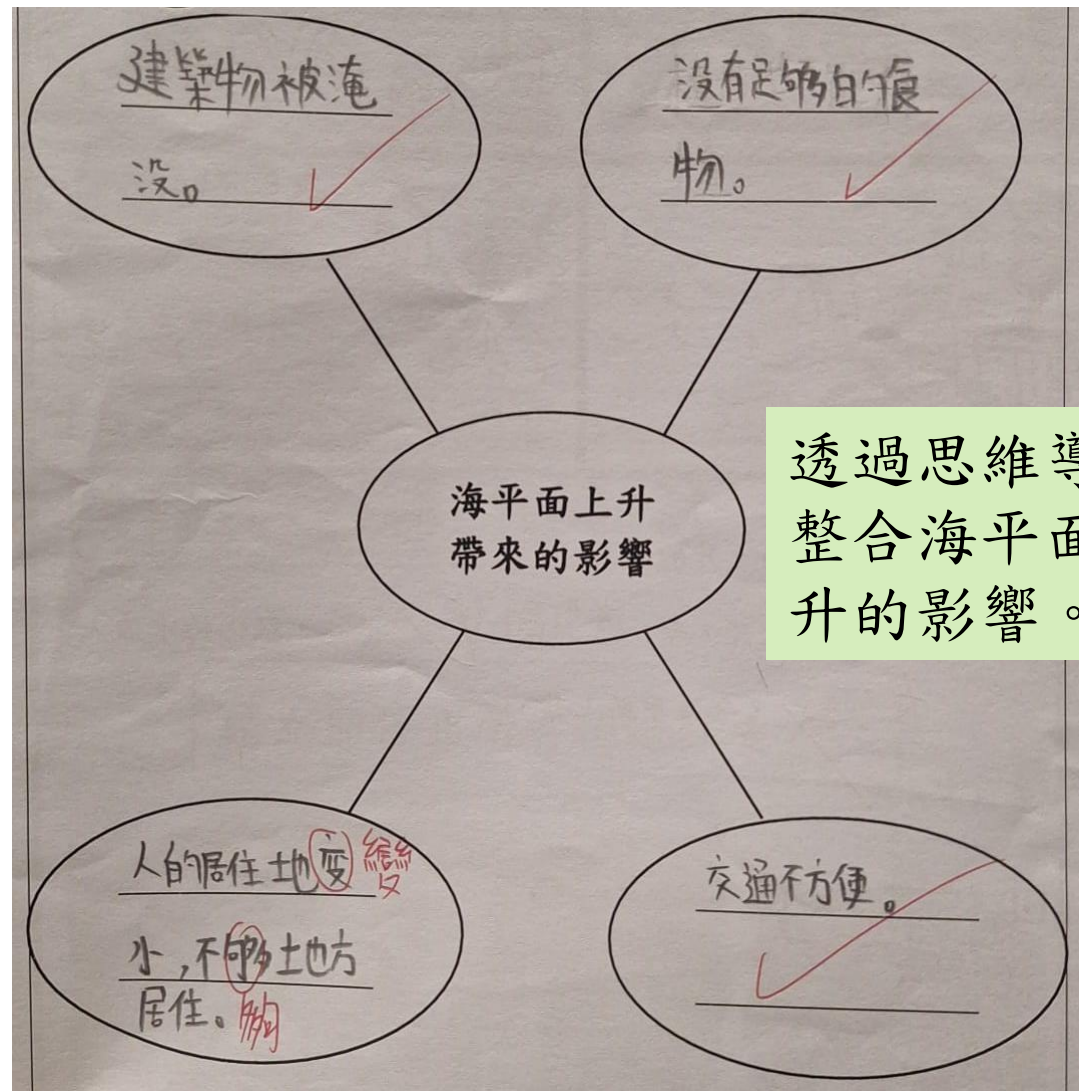 建築物被淹
没。
没有足够的食
物。
海平面上升
帶來的影響
透過思維導
整合海平面
升的影響。
人的居住地变 變
小,不够地方
居住。夠
交通不方便。